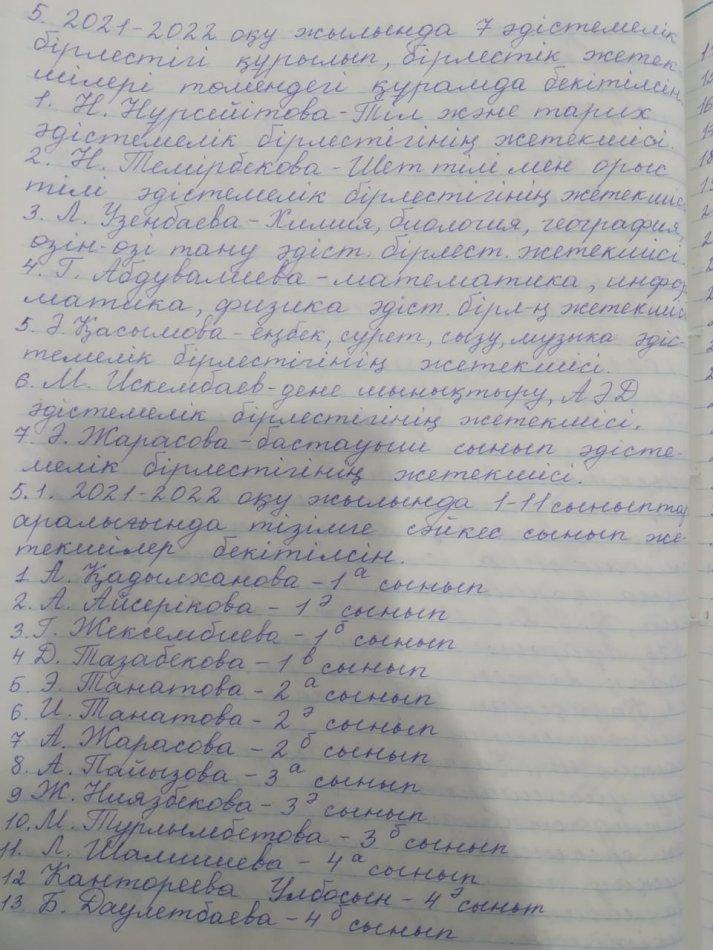 5. 2021-2022 оқу жылында 7 әдістемелік
бірлестігі құрылып, бірлестік жетек-
шілері төмендегі құрамда бекітілсін.
1. Н. Нурсейітова - Тіл және тарих
әдістемелік бірлестігінің жетекшісі.
2. Н. Темірбекова - Шет тілі мен орыс
тілі әдістемелік бірлестігінің жетекшіс
3. Л. Узенбаева - Химия, биология, география,
өзін-өзі тану әдіст. бірлест. жетекшісі.
4. Г. Абдувалиева - математика, инфор
матика, физика әдіст. бірл-ң жетекшіс
5. Ә Қасымова - еңбек, сурет, сызу, музыка әдіс-
темелік бірлестігінің жетекшісі.
6. М. Искембаев - дене шынықтыру, АӘД
әдістемелік бірлестігінің жетекшісі.
7. Ә. Жарасова - бастауыш сынып әдісте-
мелік бірлестігінің жетекшісі.
5.1. 2021-2022 оқу жылында 1-11 сыныптар
аралығында тізімге сәйкес сынып же-
текшілер бекітілсін.
1 А. Қадылханова - 1 а сынып
2. А. Айсерікова - 1 ә сынып
3. Г. Жексембиева - 1 б сынып
4 Д. Тазабекова - 1 в сынып
5. Э. Танатова - 2 а сынып
6. И. Танатова - 2 ә сынып
7 А. Жарасова - 2 б сынып
8. А. Пайызова - 3 а сынып
9 Ж. Ниязбекова - 3 ә сынып
10. М. Турлымбетова - 3 б сынып
11. Л. Шамшиева - 4 а сынып
12 Кантореева Улбосын - 4 ә сынып
13. Б. Даулетбаева - 4 б сынып